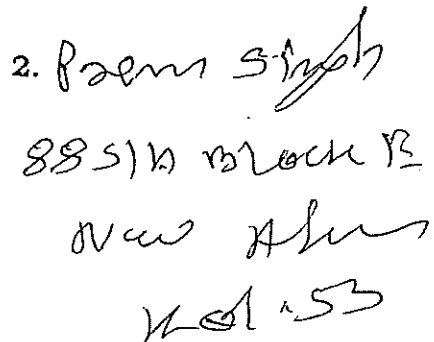 2. Prem Singh
885/A Block B
New Alipur
Kol. 53